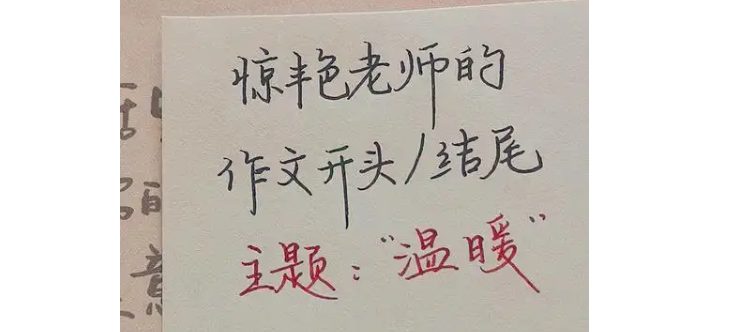 惊艳老师的
作文开头/结尾
主题：“温暖”